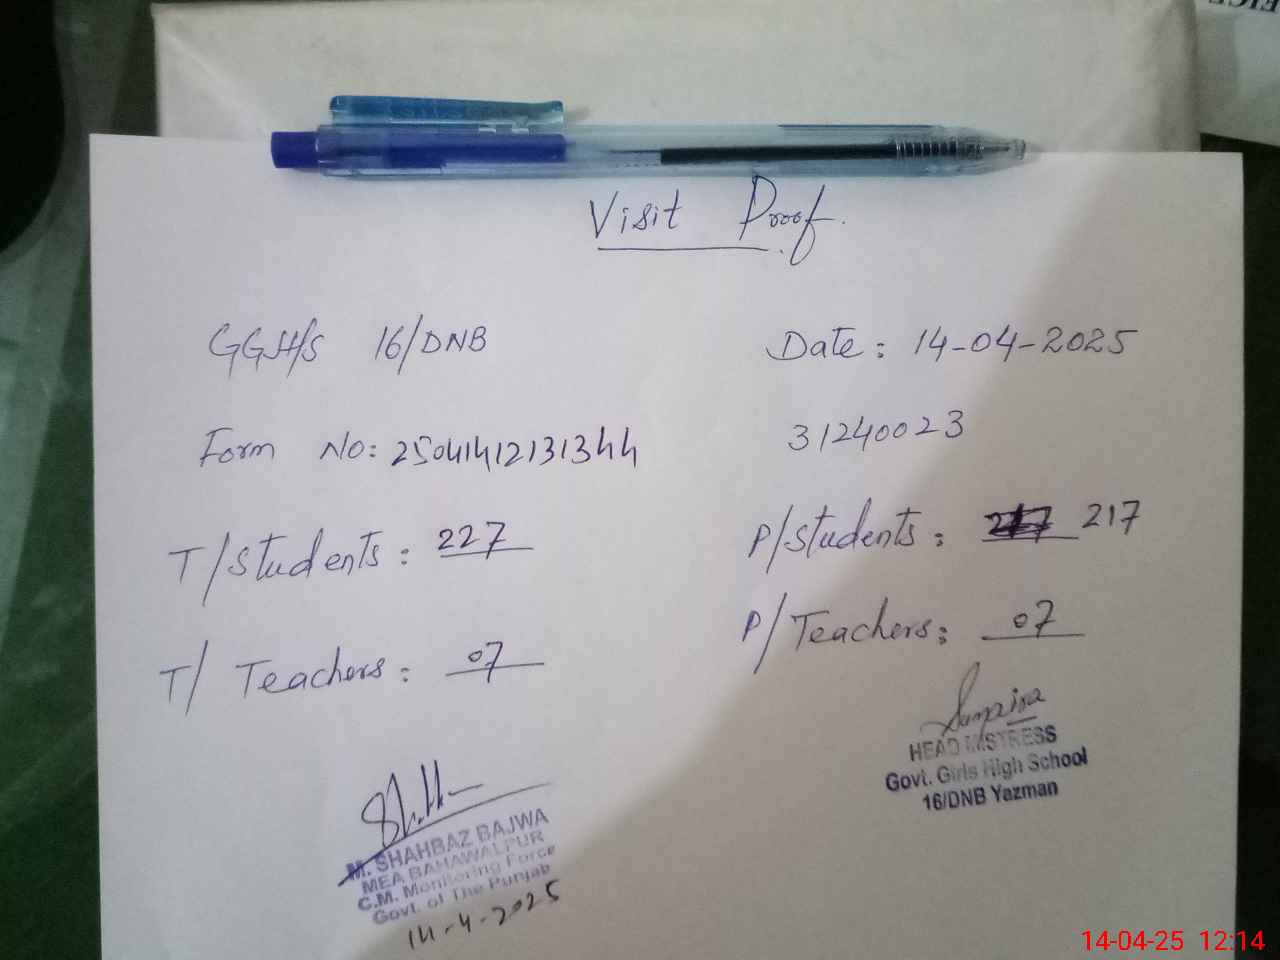 Visit Proof.
GGH/S 16/DNB
Date: 14-04-2025
Form No: 25041412131344
31240023
T/Students: 227
P/Students: 217
T/ Teachers: 07
P/ Teachers: 07
HEAD MISTRESS
Govt. Girls High School
16/DNB Yazman
M. SHAHBAZ BAJWA
MEA BAHAWALPUR
C.M. Monitoring Force
Govt. of The Punjab
14-4-2025
14-04-25 12:14